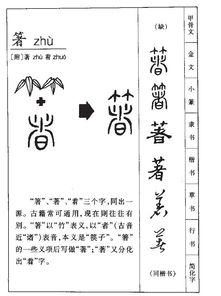 箸 zhù
[附]著 zhù 着 zhuó
(缺)
箸
箸
箸
著
(同楷书)
甲骨文
金文
小篆
隶书
楷书
草书
行书
简化字
“箸”、“著”、“着”三个字，同出一
源。古籍常可通用，现在则往往有
别。“箸”以“竹”表义，以“者”(古音
近“诸”)表音，本义是“筷子”。“箸”
的一些义项后写做“著”；“著”又分化
出“着”字。